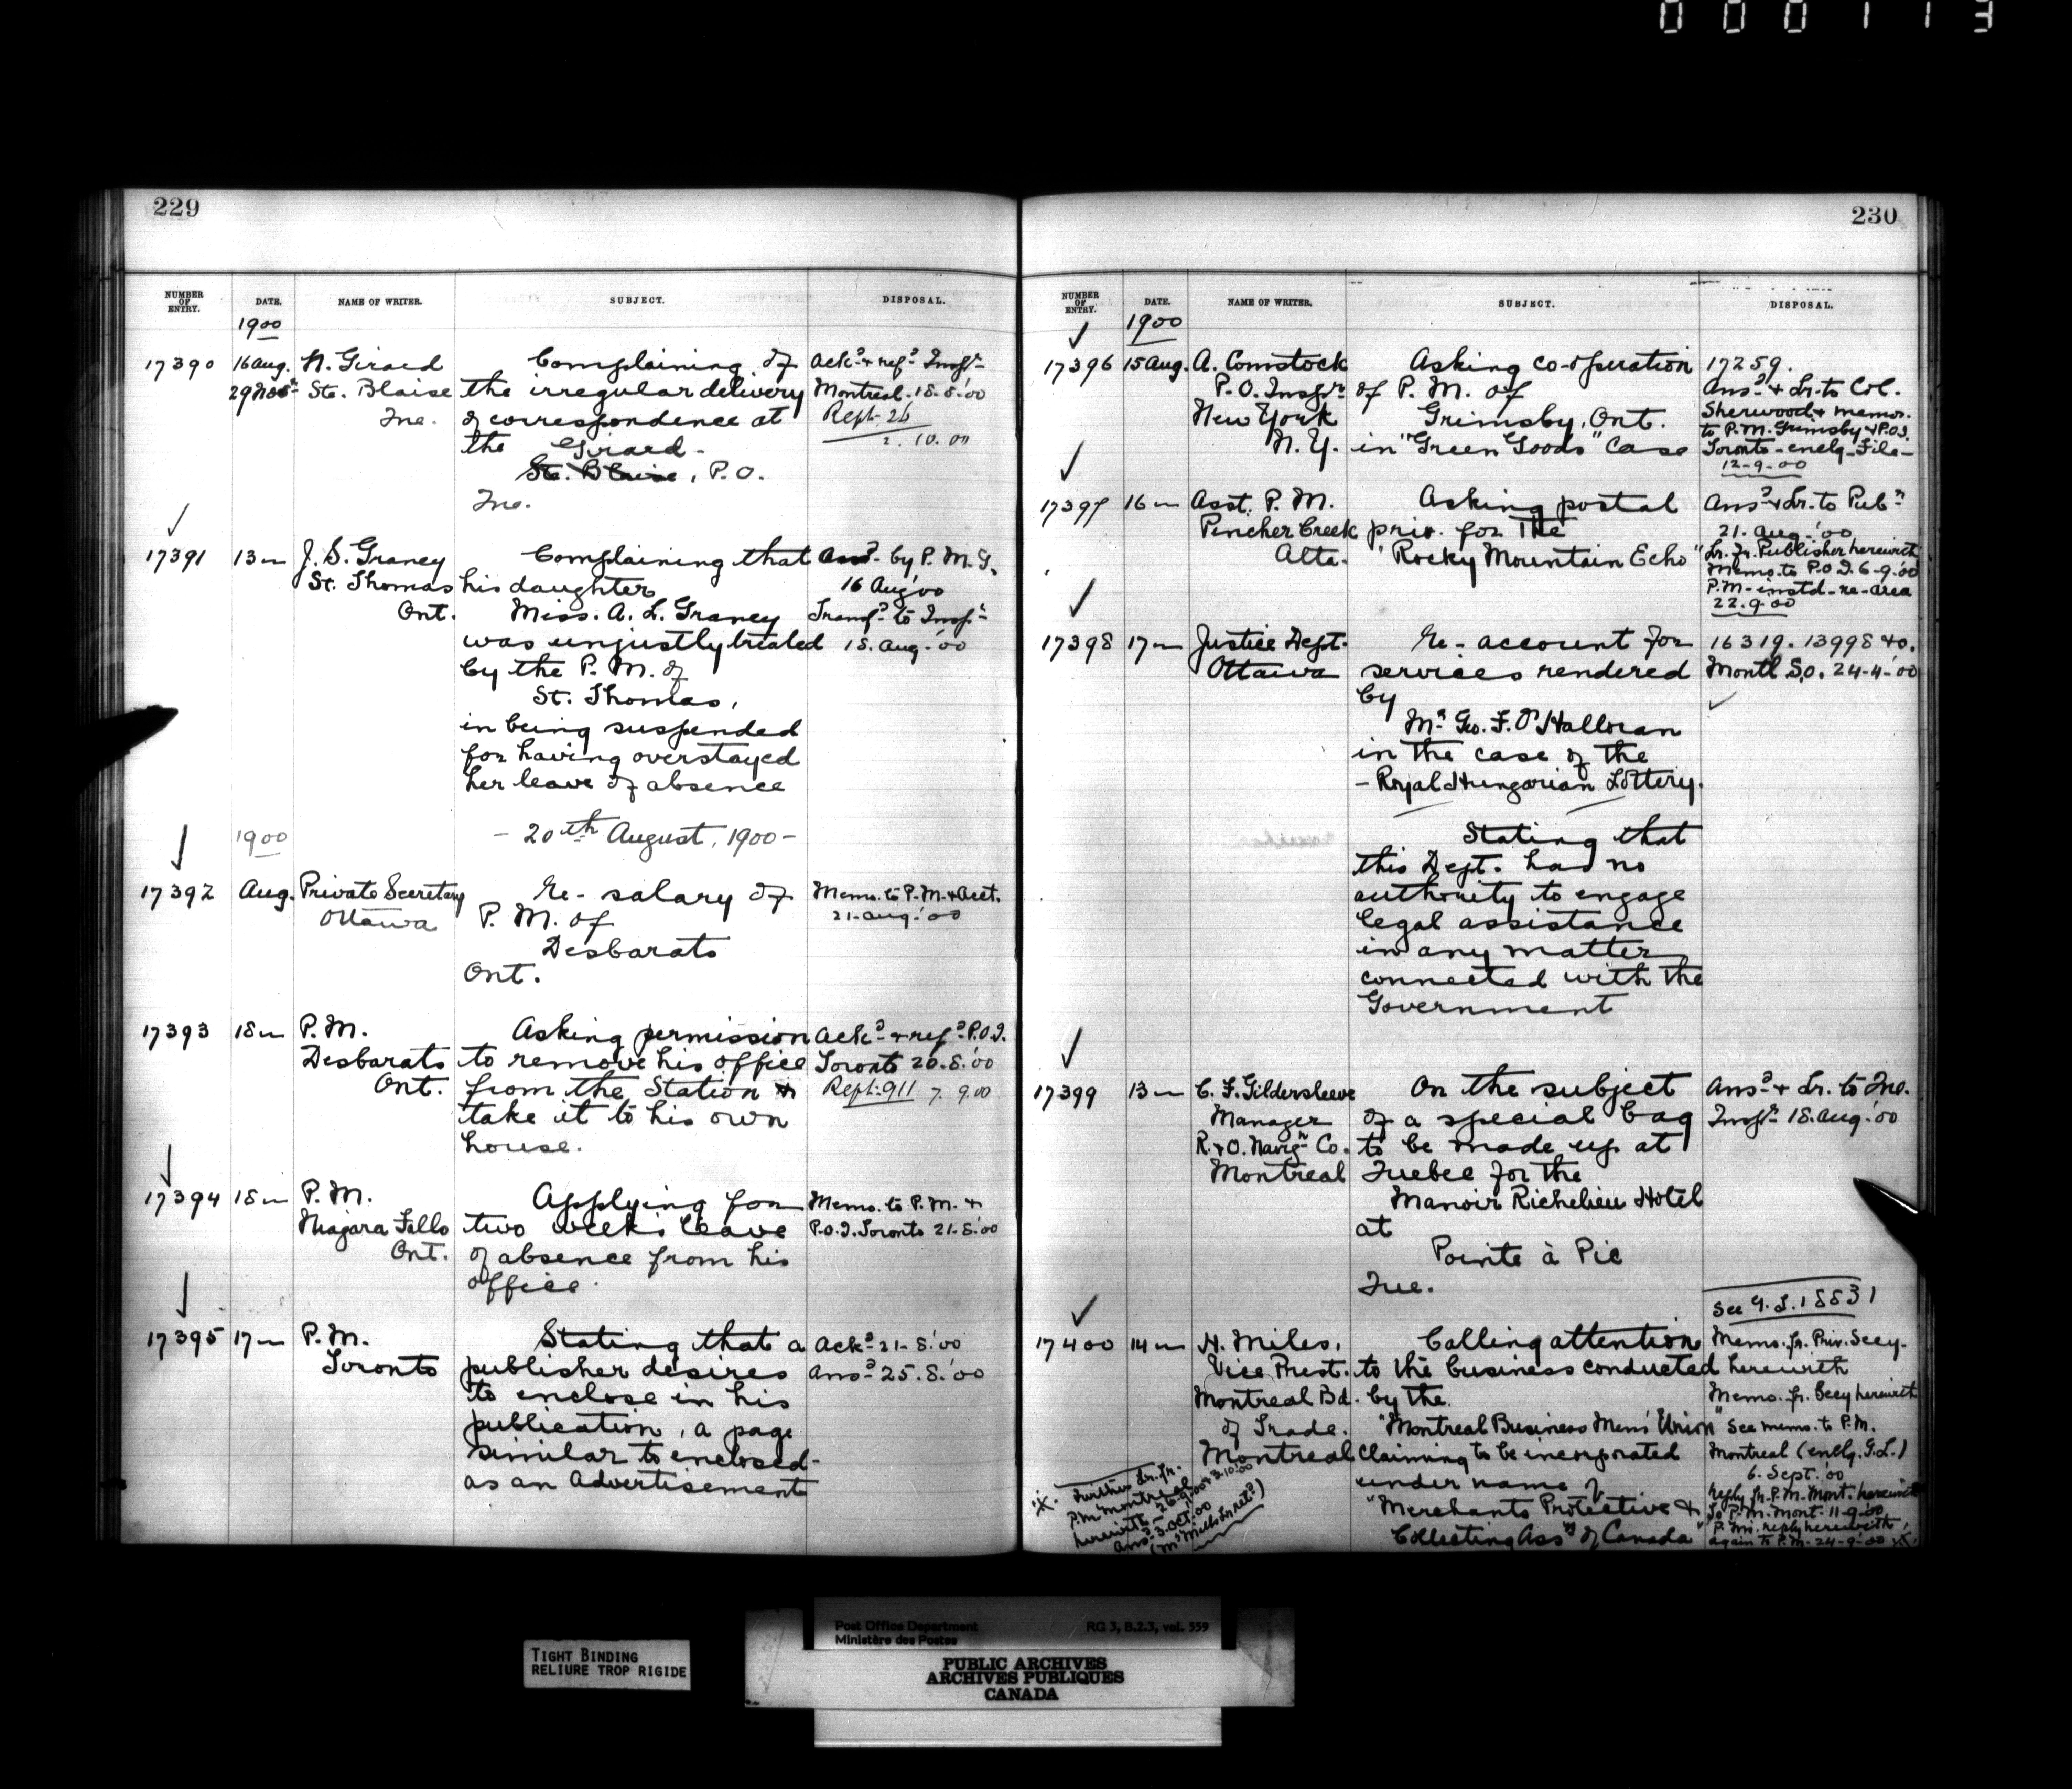 000113
229
NUMBER OF ENTRY. DATE. NAME OF WRITER. SUBJECT. DISPOSAL.
1900
17390 16 Aug. N. Girard Complaining of Ack? & ref? Inspr
29 Nov Ste. Blaise the irregular delivery Montreal. 18.8.'00
Que. of correspondence at Rept. 26
the Girard - 2. 10. 00
Ste. Blaise, P.O.
Que.
17391 13 " J. S. Graney Complaining that Ans? by P. M. G.
St. Thomas his daughter 16 Aug '00
Ont. Miss. A. L. Graney Transf? to Inspr
was unjustly treated 18. Aug. '00
by the P. M. of
St. Thomas,
in being suspended
for having overstayed
her leave of absence
1900 - 20th August, 1900 -
17392 Aug. Private Secretary Re - salary of Memo. to P.M. & Acct.
Ottawa P. M. of 21. Aug. '00
Desbarats
Ont.
17393 18 " P. M. Asking permission Ack? & ref? P.O.I.
Desbarats to remove his office Toronto 20.8.'00
Ont. from the Station & Rept. 911 7. 9.00
take it to his own
house.
17394 18 " P. M. Applying for Memo. to P. M. &
Niagara Falls two weeks leave P.O.I. Toronto 21.8.'00
Ont. of absence from his
office.
17395 17 " P. M. Stating that a Ack? 21.8.'00
Toronto publisher desires Ans? 25.8.'00
to enclose in his
publication, a page
similar to enclosed -
as an Advertisement
230
NUMBER OF ENTRY. DATE. NAME OF WRITER. SUBJECT. DISPOSAL.
1900
17396 15 Aug. A. Comstock Asking co-operation 17259.
P. O. Inspr of P. M. of Ans? & Lr. to Col.
New York Grimsby, Ont. Sherwood & memos.
N. Y. in "Green Goods" Case to P.M. Grimsby & P.O.I.
Toronto - enclg - File -
12-9-00
17397 16 " Asst. P. M. Asking postal Ans? & Lr. to Pubr
Pincher Creek priv. for The 21. Aug. '00
Alta. "Rocky Mountain Echo" Lr. fr. Publisher herewith
Memo. to P.O.I. 6-9-'00
P.M. - instd - re - area
22.9.00
17398 17 " Justice Dept. Re - account for 16319. 13998 &c.
Ottawa services rendered Montl S.O. 24-4-'00
by
Mr. Geo. F. O'Halloran
in the case of the
- Royal Hungarian Lottery.
Stating that
this Dept. had no
authority to engage
legal assistance
in any matter
connected with the
Government
17399 13 " C. F. Gildersleeve On the subject Ans? & Lr. to Que.
Manager of a special bag Inspr 18. Aug. '00
R. & O. Navign Co. to be made up at
Montreal Quebec for the
Manoir Richelieu Hotel
at
Pointe à Pic
Que.
See G. L. 18831
17400 14 " H. Miles, Calling attention Memo. fr. Priv. Secy.
Vice Prest. to the business conducted herewith
Montreal Bd. by the Memo. fr. Secy herewith
of Trade. "Montreal Business Men's Union" See memo. to P.M.
Montreal Claiming to be incorporated Montreal (enclg. G.L.)
under name of 6. Sept. '00
"Merchants Protective & reply fr. P.M. Mont. herewith
Collecting Assn of Canada" To P.M. Mont. 11-9-'00
P.M's. reply herewith,
again to P.M. 24-9-'00 X.
X. Further Lr. fr.
P.M. Montreal
herewith - 26-9-'00 & 3.10.'00
Ans? 3. Oct. '00
(Mr Miles Lr. ret?)
TIGHT BINDING
RELIURE TROP RIGIDE
Post Office Department RG 3, B.2.3, vol. 559
Ministère des Postes
PUBLIC ARCHIVES
ARCHIVES PUBLIQUES
CANADA